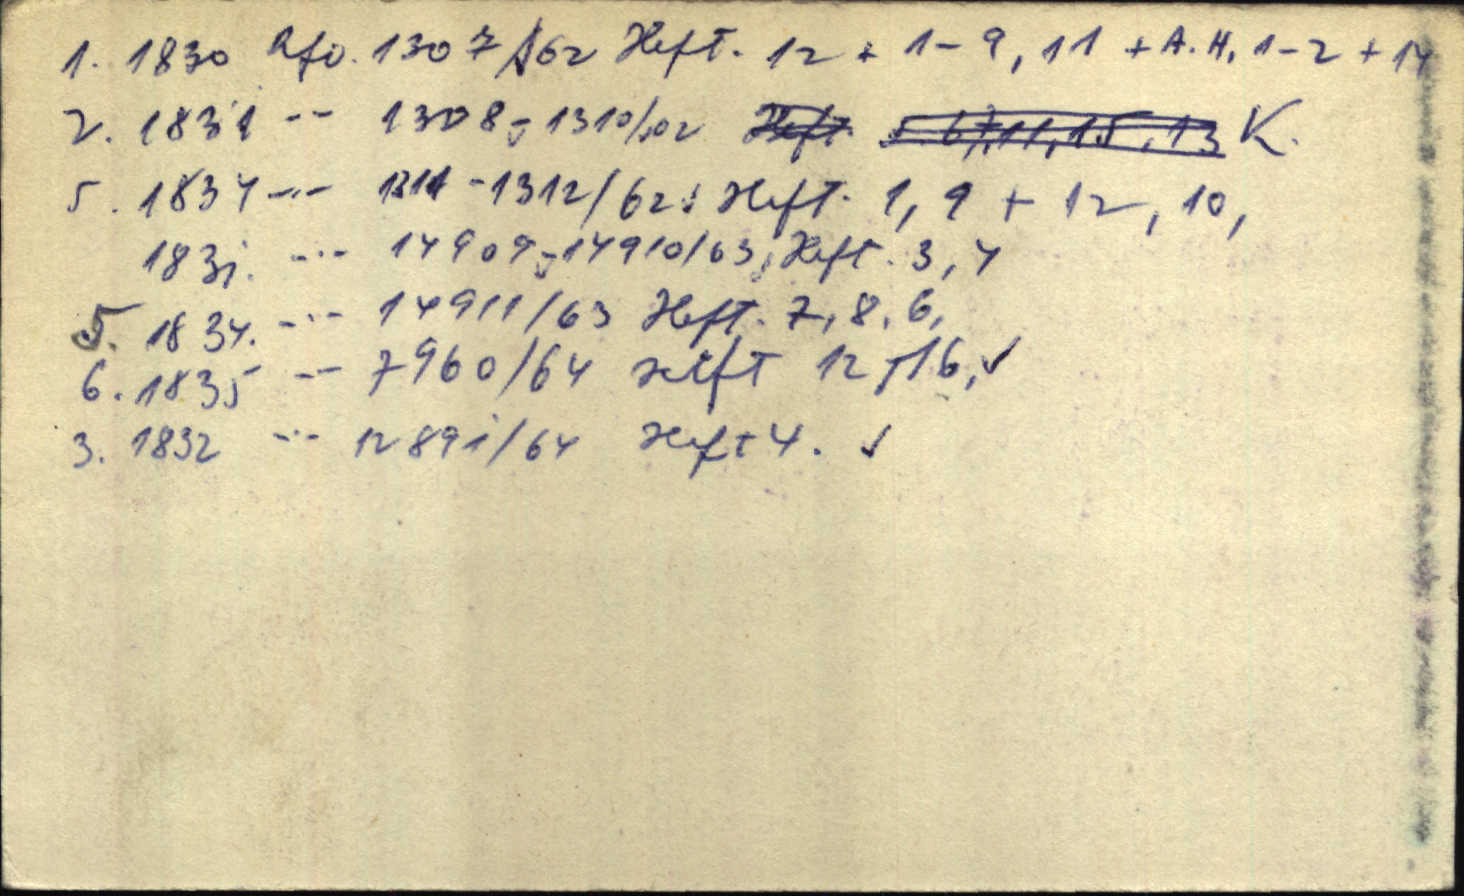 1. 1830 Rfo. 1307/62 Heft. 12 + 1-9, 11 + A.H. 1-2 + 14
2. 1831 -"- 1308-1310/62 Heft. 5, 67, 11, 15, 13 K.
5. 1834 -"- 1311-1312/62: Heft. 1, 9 + 12, 10,
183 -"- 14909-14910/63, Heft. 3, 4
5. 1834. -"- 14911/63 Heft. 7, 8, 6,
6. 1835 -"- 7960/64 Heft 12, 16, ✓
3. 1832 -"- 12891/64 Heft 4. ✓